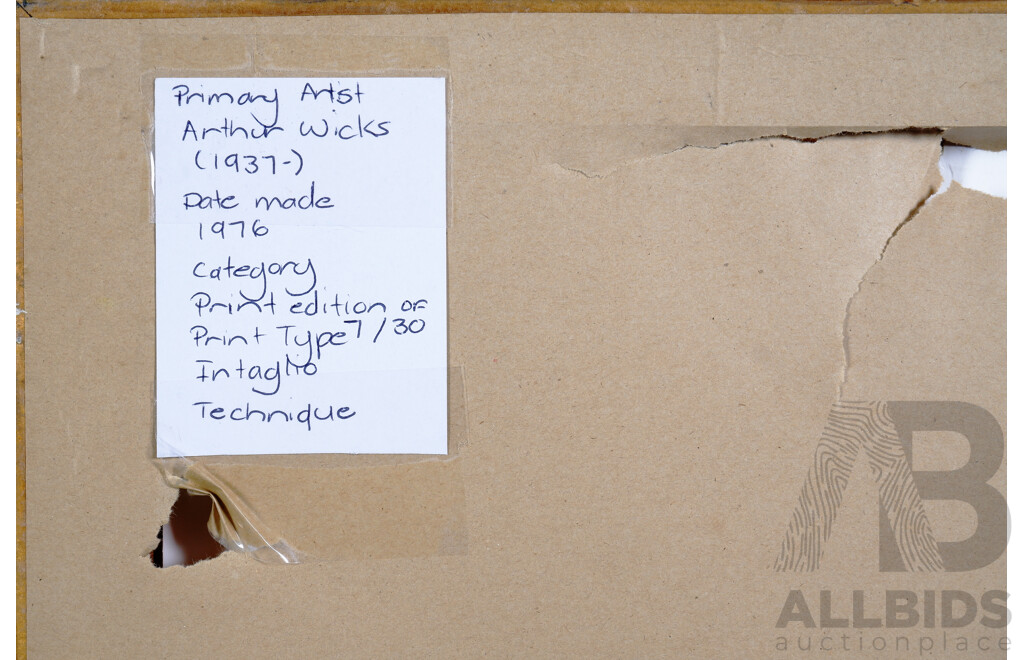 Primary Artist
Arthur Wicks
(1937-)
Date made
1976
Category
Print edition of
Print Type 7/30
Intaglio
Technique
AB
ALLBIDS
auctionplace